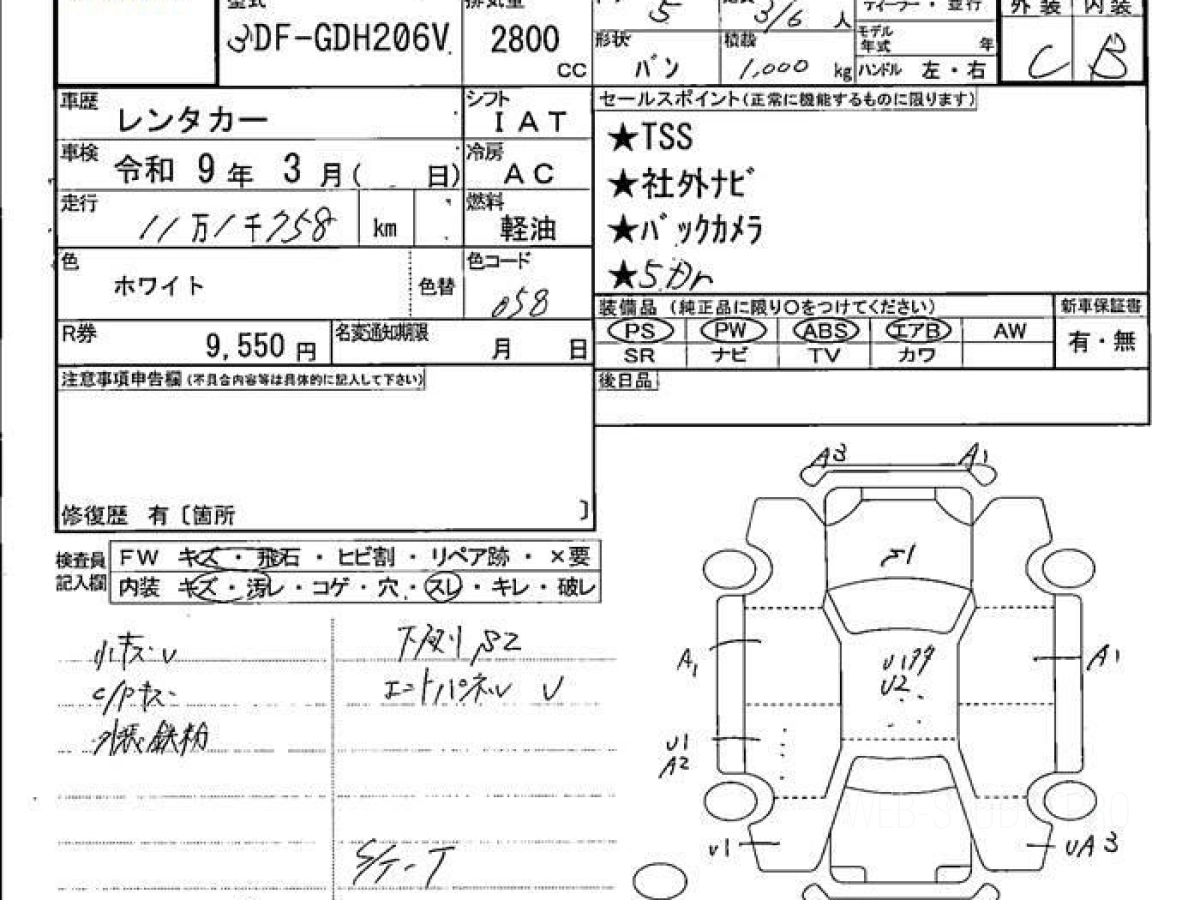 型式 3DF-GDH206V
排気量 2800 CC
ドア 5
定員 3/6 人
ディーラー・並行
モデル年式 年
外装 C
内装 B
形状 バン
積載 1,000 kg
ハンドル 左・右
車歴 レンタカー
シフト IAT
車検 令和 9年 3月( 日)
冷房 AC
走行 11万1千758 km
燃料 軽油
色 ホワイト
色替
色コード 058
R券 9,550円
名変通知期限 月 日
注意事項申告欄(不具合内容等は具体的に記入して下さい)
修復歴 有〔箇所 〕
セールスポイント(正常に機能するものに限ります)
★TSS
★社外ナビ
★バックカメラ
★5Dr
装備品 (純正品に限り○をつけてください)
新車保証書
PS PW ABS エアB AW
SR ナビ TV カワ
有・無
後日品
検査員記入欄
FW キズ・飛石・ヒビ割・リペア跡・×要
内装 キズ・汚レ・コゲ・穴・スレ・キレ・破レ
小キズU
C/Pキズ
外装鉄粉
下廻り S2
エンドパネル U
S/T-T
A3 A1
A1
U2
A1 A1
U1
A2
U1 UA3